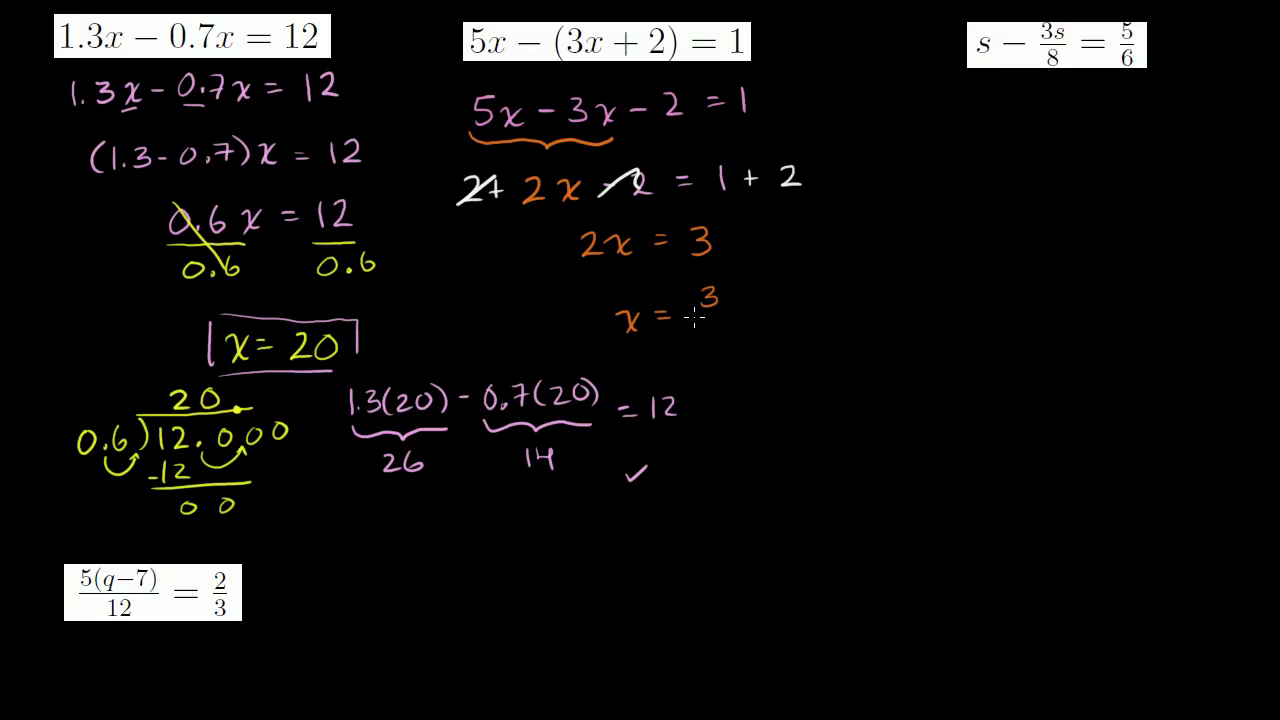 1.3x − 0.7x = 12
1.3x − 0.7x = 12
(1.3 − 0.7)x = 12
0.6x = 12
0.6 0.6
x = 20
20.
0.6)12.000
-12
00
1.3(20) − 0.7(20) = 12
26 14 ✓
5x − (3x + 2) = 1
5x − 3x − 2 = 1
2+ 2x − 2 = 1 + 2
2x = 3
x = 3
s − 3s/8 = 5/6
5(q−7)/12 = 2/3